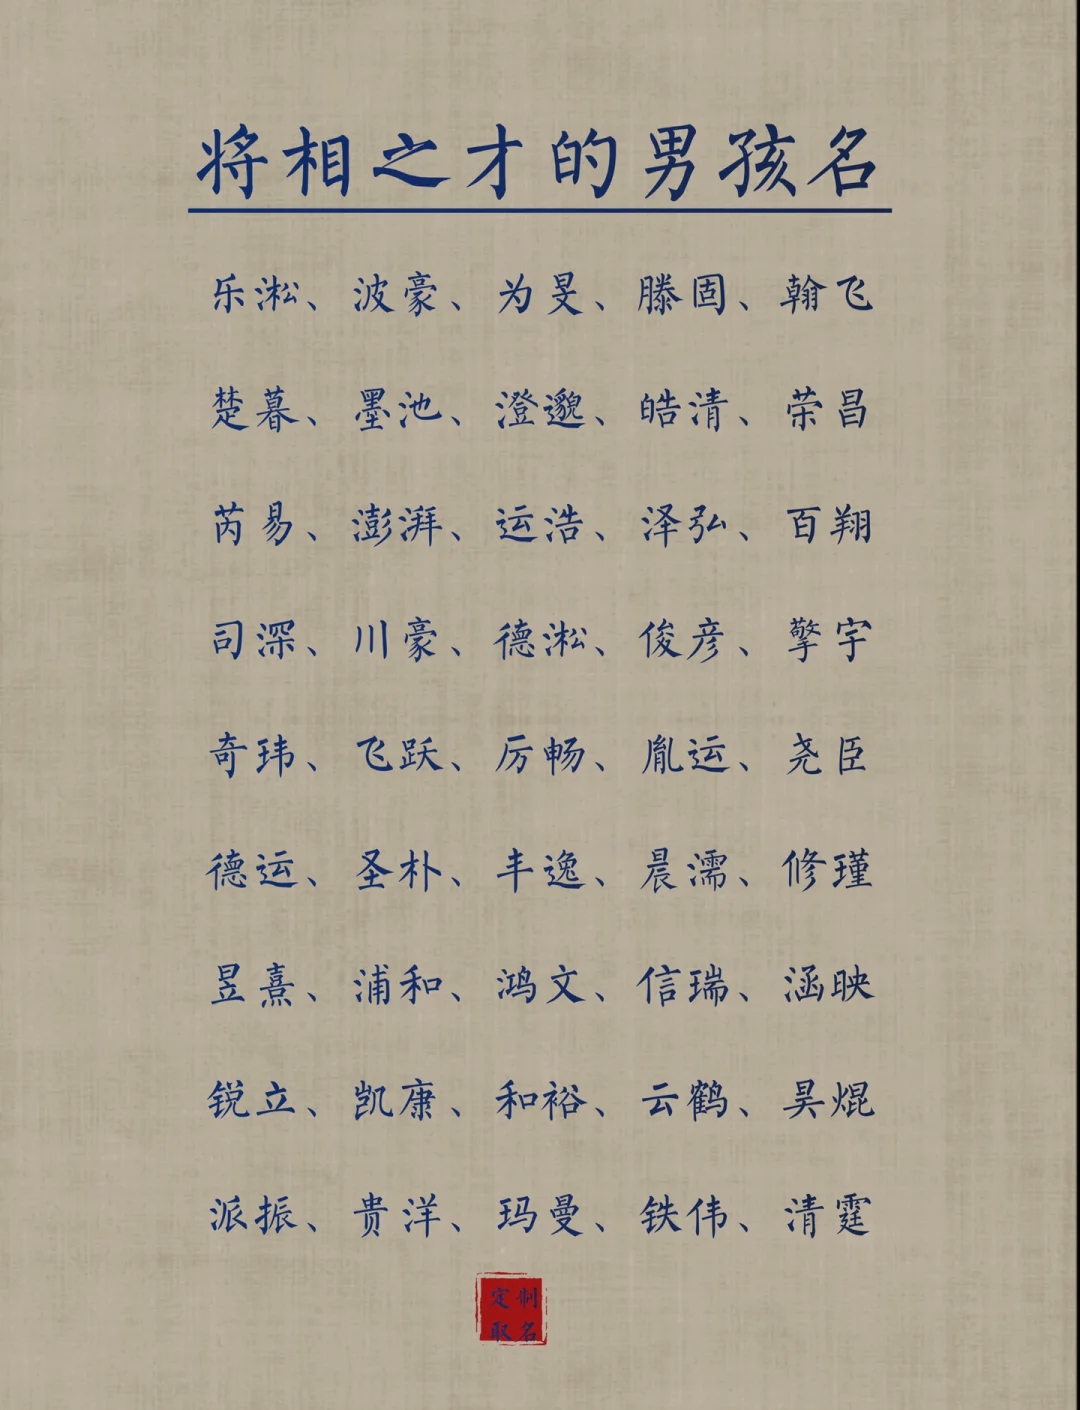 将相之才的男孩名
乐淞、波豪、为旻、滕固、翰飞
楚暮、墨池、澄邈、皓清、荣昌
芮易、澎湃、运浩、泽弘、百翔
司深、川豪、德淞、俊彦、擎宇
奇玮、飞跃、厉畅、胤运、尧臣
德运、圣朴、丰逸、晨濡、修瑾
昱熹、浦和、鸿文、信瑞、涵映
锐立、凯康、和裕、云鹤、昊焜
派振、贵洋、玛曼、铁伟、清霆
定制
取名